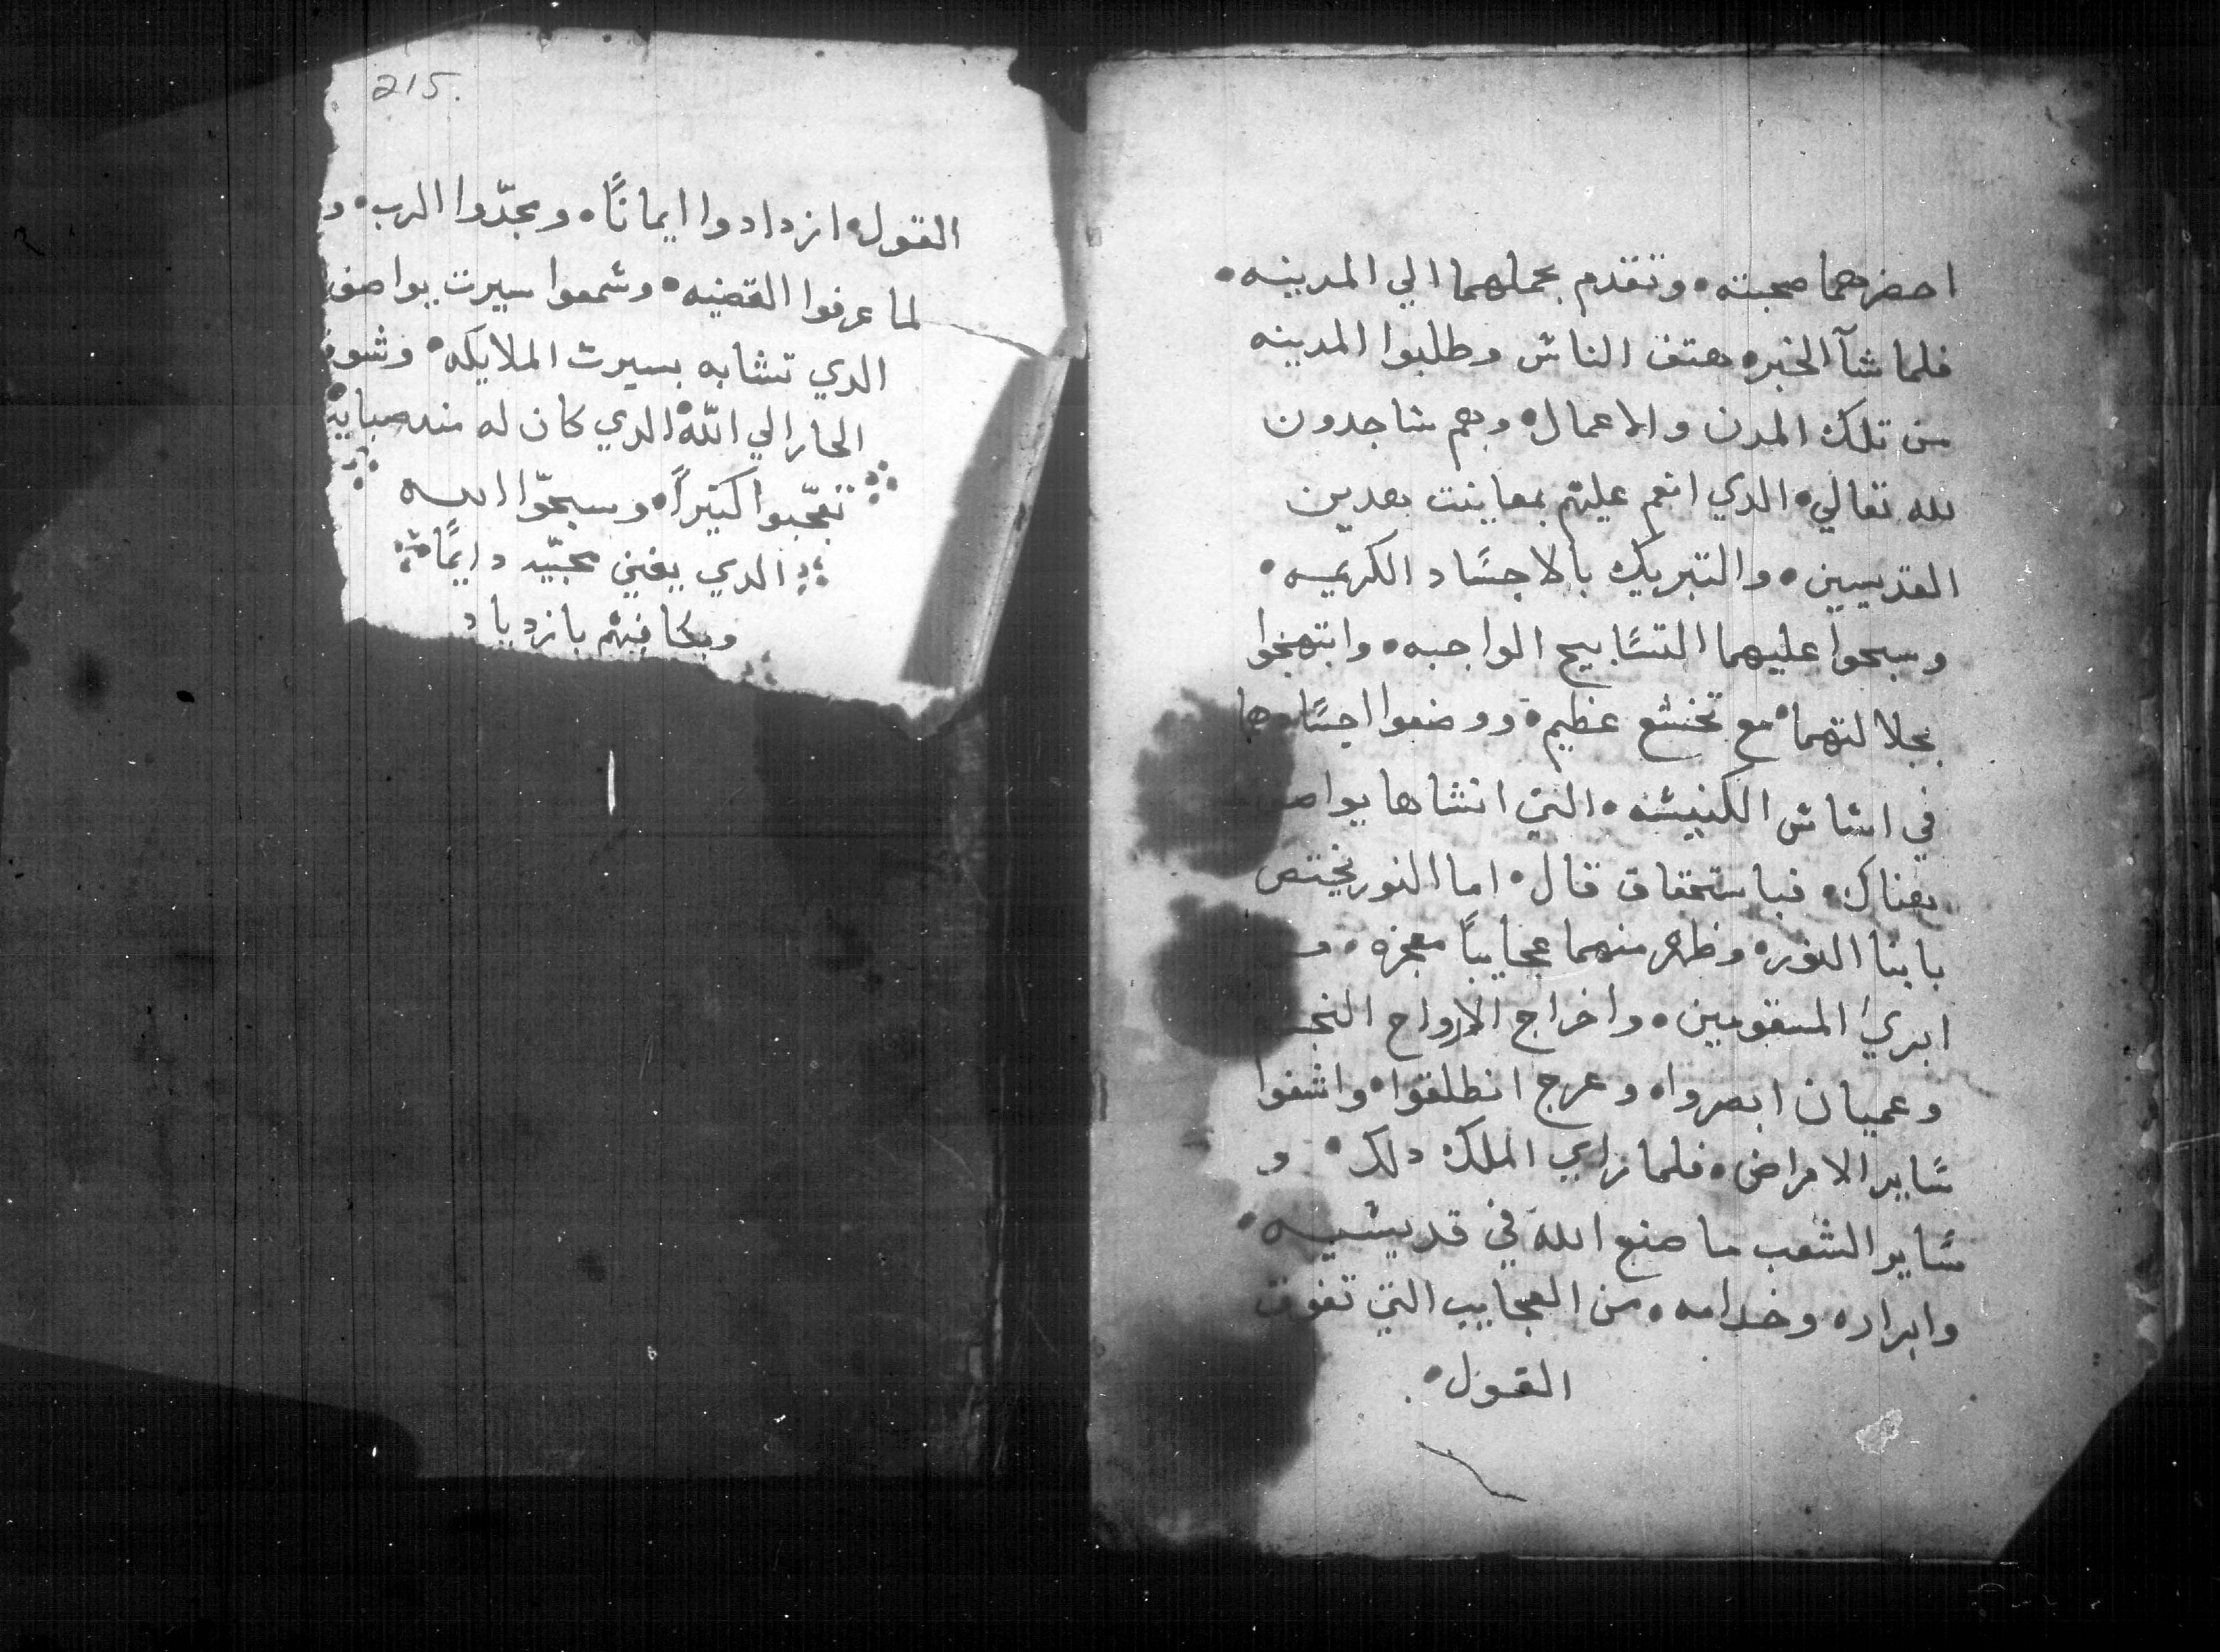 احضرهما صحبته • وتقدم بحملهما الي المدينه •
فلما شآ الخبر • هتف الناش وطلبوا المدينه
من تلك المدن والاعمال • وهم شاجدون
لله تعالي • الدي انعم عليهم بمعاينت هدين
القديسين • والتبريك بالاجسَاد الكريمه •
وسبحوا عليهما التسَابيح الواجبه • وابتهجوا
بجلالتهما • مع تخشع عظيم • ووضعوا اجسَادهما
في اشاش الكنيشه • التي انشاها يواصف
هناك • فباستحقاق قال • اما النور فيختص
بابنا النور • وظهر منهما عجايباً معجزه • و
ابري المسقومين • واخراج الارواح
وعميان ابصروا • وعرج انطلقوا • واشفوا
سَاير الامراض • فلما راي الملك دلك • و
سَاير الشعب ما صنع الله في قديشيه •
وابراره وخدامه • من العجايب التي تفوق
القول •
215.
القول • ازدادوا ايمانًا • ومجدّوا الرب • و
لما عرفوا القضيه • وشمعوا سيرت يواصف
الدي تشابه بسيرت الملايكه • وشوقه
الحار الي اللّه • الدي كان له مند صبايه
تعجّبوا كتيراً • وسبحّوا الله
الدي يعين محبّيه دايمًا •
ويكافيهم بازدياد